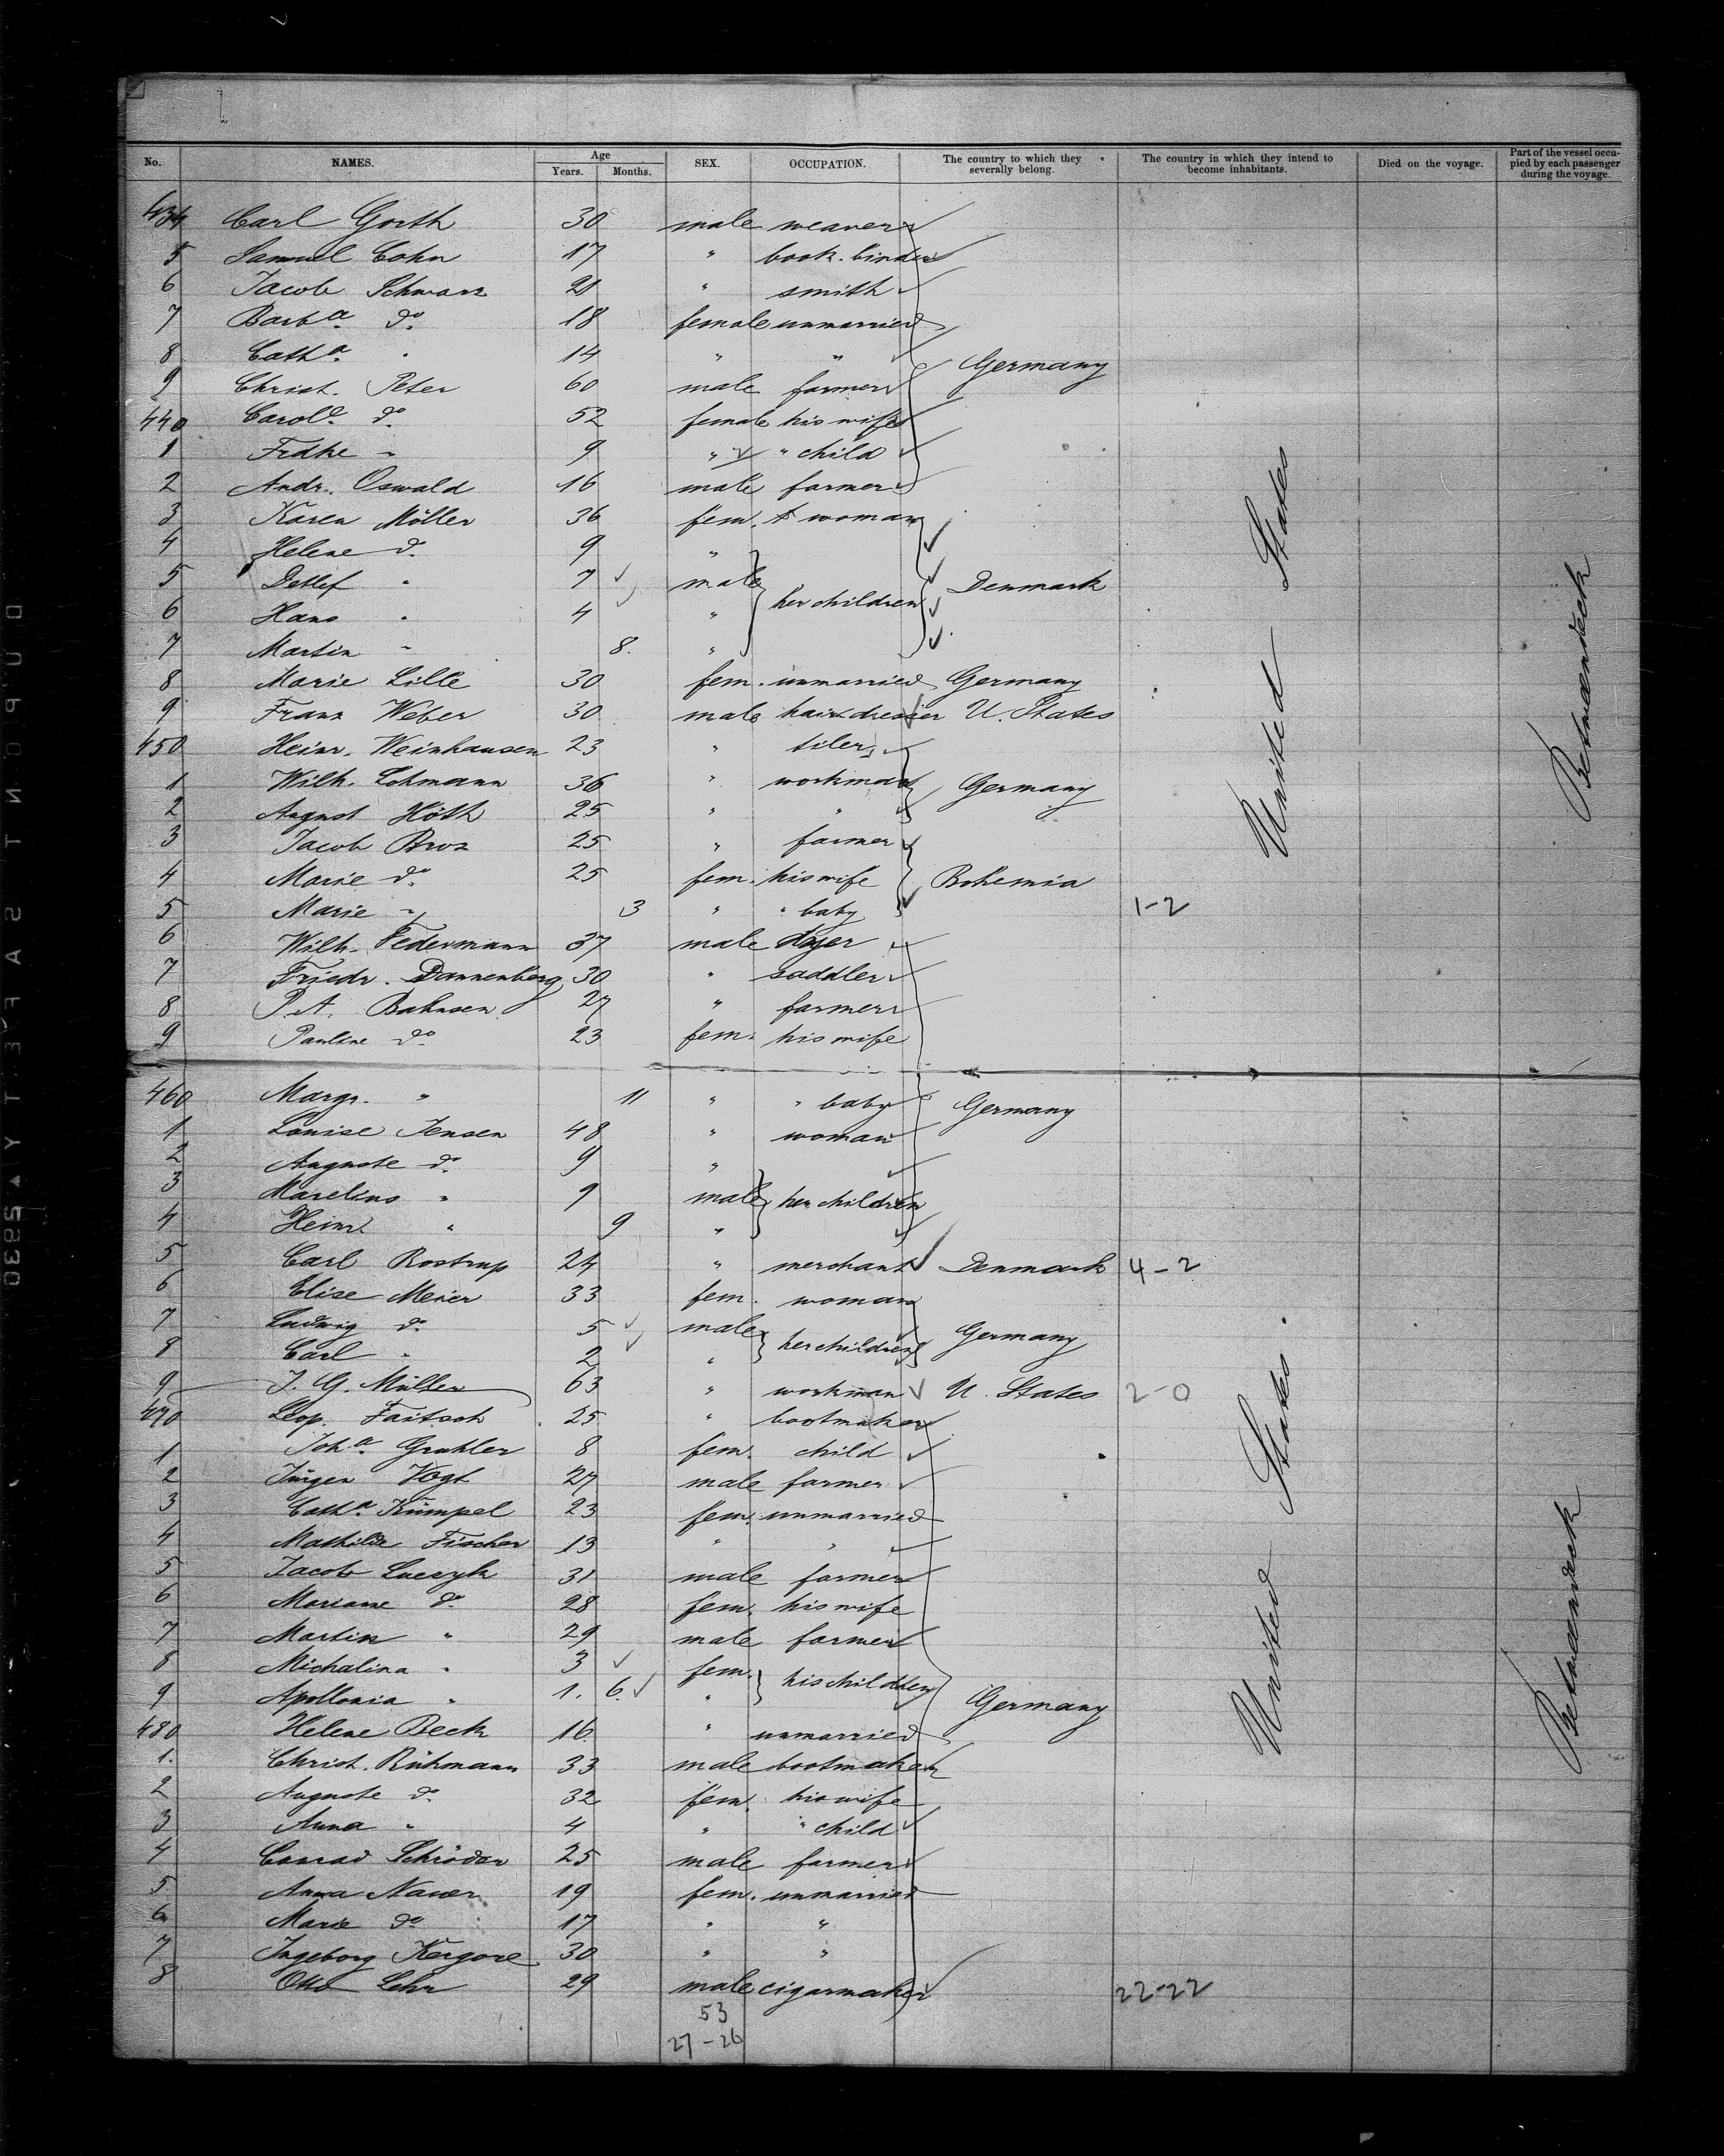 No. NAMES. Age Years. Months. SEX. OCCUPATION. The country to which they severally belong. The country in which they intend to become inhabitants. Died on the voyage. Part of the vessel occupied by each passenger during the voyage.
434 Carl Gorth 30 male weaver
5 Samuel Cohn 17 " book-binder
6 Jacob Schwarz 21 " smith
7 Barba. do. 18 female unmarried
8 Catha. " 14 " "
9 Christ. Peter 60 male farmer Germany
440 Carole. do. 52 female his wife
1 Fredke " 9 " " child
2 Andr. Oswald 16 male farmer
3 Karen Möller 36 fem. woman
4 Helene do. 9 "
5 Detlef " 7 male her children Denmark
6 Hans " 4 "
7 Martin " 8. "
8 Marie Lille 30 fem. unmarried Germany
9 Franz Weber 30 male hairdresser U. States
450 Heinr. Weinhausen 23 " tiler
1 Wilh. Lohmann 36 " workman Germany
2 August Höth 25 " "
3 Jacob Broz 25 " farmer
4 Marie do. 25 fem. his wife Bohemia
5 Marie " 3 " " baby 1-2
6 Wilh. Federmann 37 male dyer
7 Friedr. Dannenberg 30 " saddler
8 P. A. Bahnsen 27 " farmer
9 Pauline do. 23 fem. his wife
460 Margr. " 11 " " baby Germany
1 Louise Jensen 48 " woman
2 Auguste do. 9 "
3 Marelius " 9 male her children
4 Heinr. " 9 "
5 Carl Rostrup 24 " merchant Denmark 4-2
6 Elise Meier 33 fem. woman
7 Ludwig do. 5 male her children Germany
8 Carl " 2 "
9 J. G. Müller 63 " workman U. States 2-0
470 Leop. Faitsch 25 " bootmaker
1 Joha. Grahler 8 fem. child
2 Jürgen Vogt 27 male farmer
3 Catha. Kümpel 23 fem. unmarried
4 Mathilde Fischer 13 " "
5 Jacob Luczyk 31 male farmer
6 Mariane do. 28 fem. his wife
7 Martin " 29 male farmer
8 Michalina " 3 fem. his children
9 Apollonia " 1. 6. " Germany
480 Helene Beck 16. " unmarried
1. Christ. Rühmann 33 male bootmaker
2 Auguste do. 32 fem. his wife
3 Anna " 4 " " child
4 Conrad Schröder 25 male farmer
5 Anna Nauer 19 fem. unmarried
6 Marie do. 17 " "
7 Ingeborg Kergore 30 " "
8 Otto Lehr 29 male cigarmaker 22-22
53
27-26
United States
Betweendeck
United States.
Betweendeck